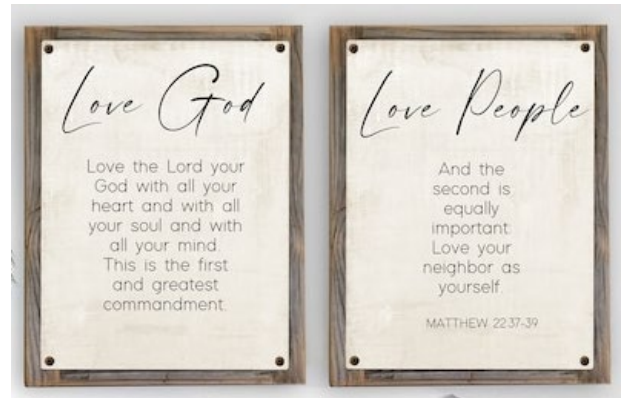 Love God
Love the Lord your
God with all your
heart and with all
your soul and with
all your mind.
This is the first
and greatest
commandment.
Love People
And the
second is
equally
important:
Love your
neighbor as
yourself.
MATTHEW 22:37-39